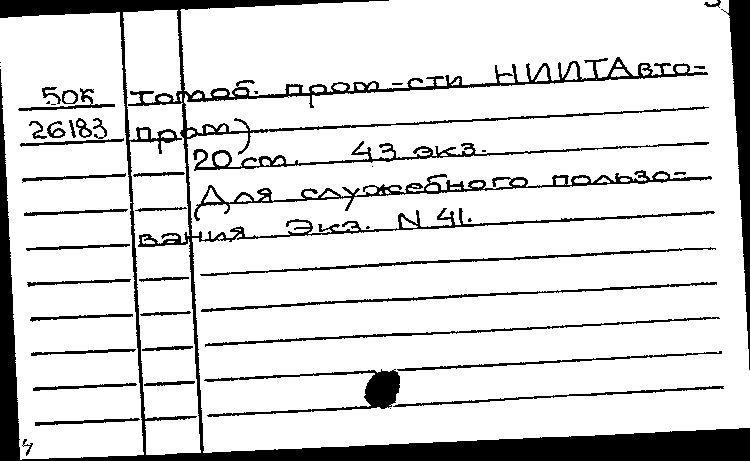 50к томоб. пром-сти НИИТАвто-
26183 пром)
20 ст. 43 экз.
Для служебного пользо-
вания. Экз. N 41.